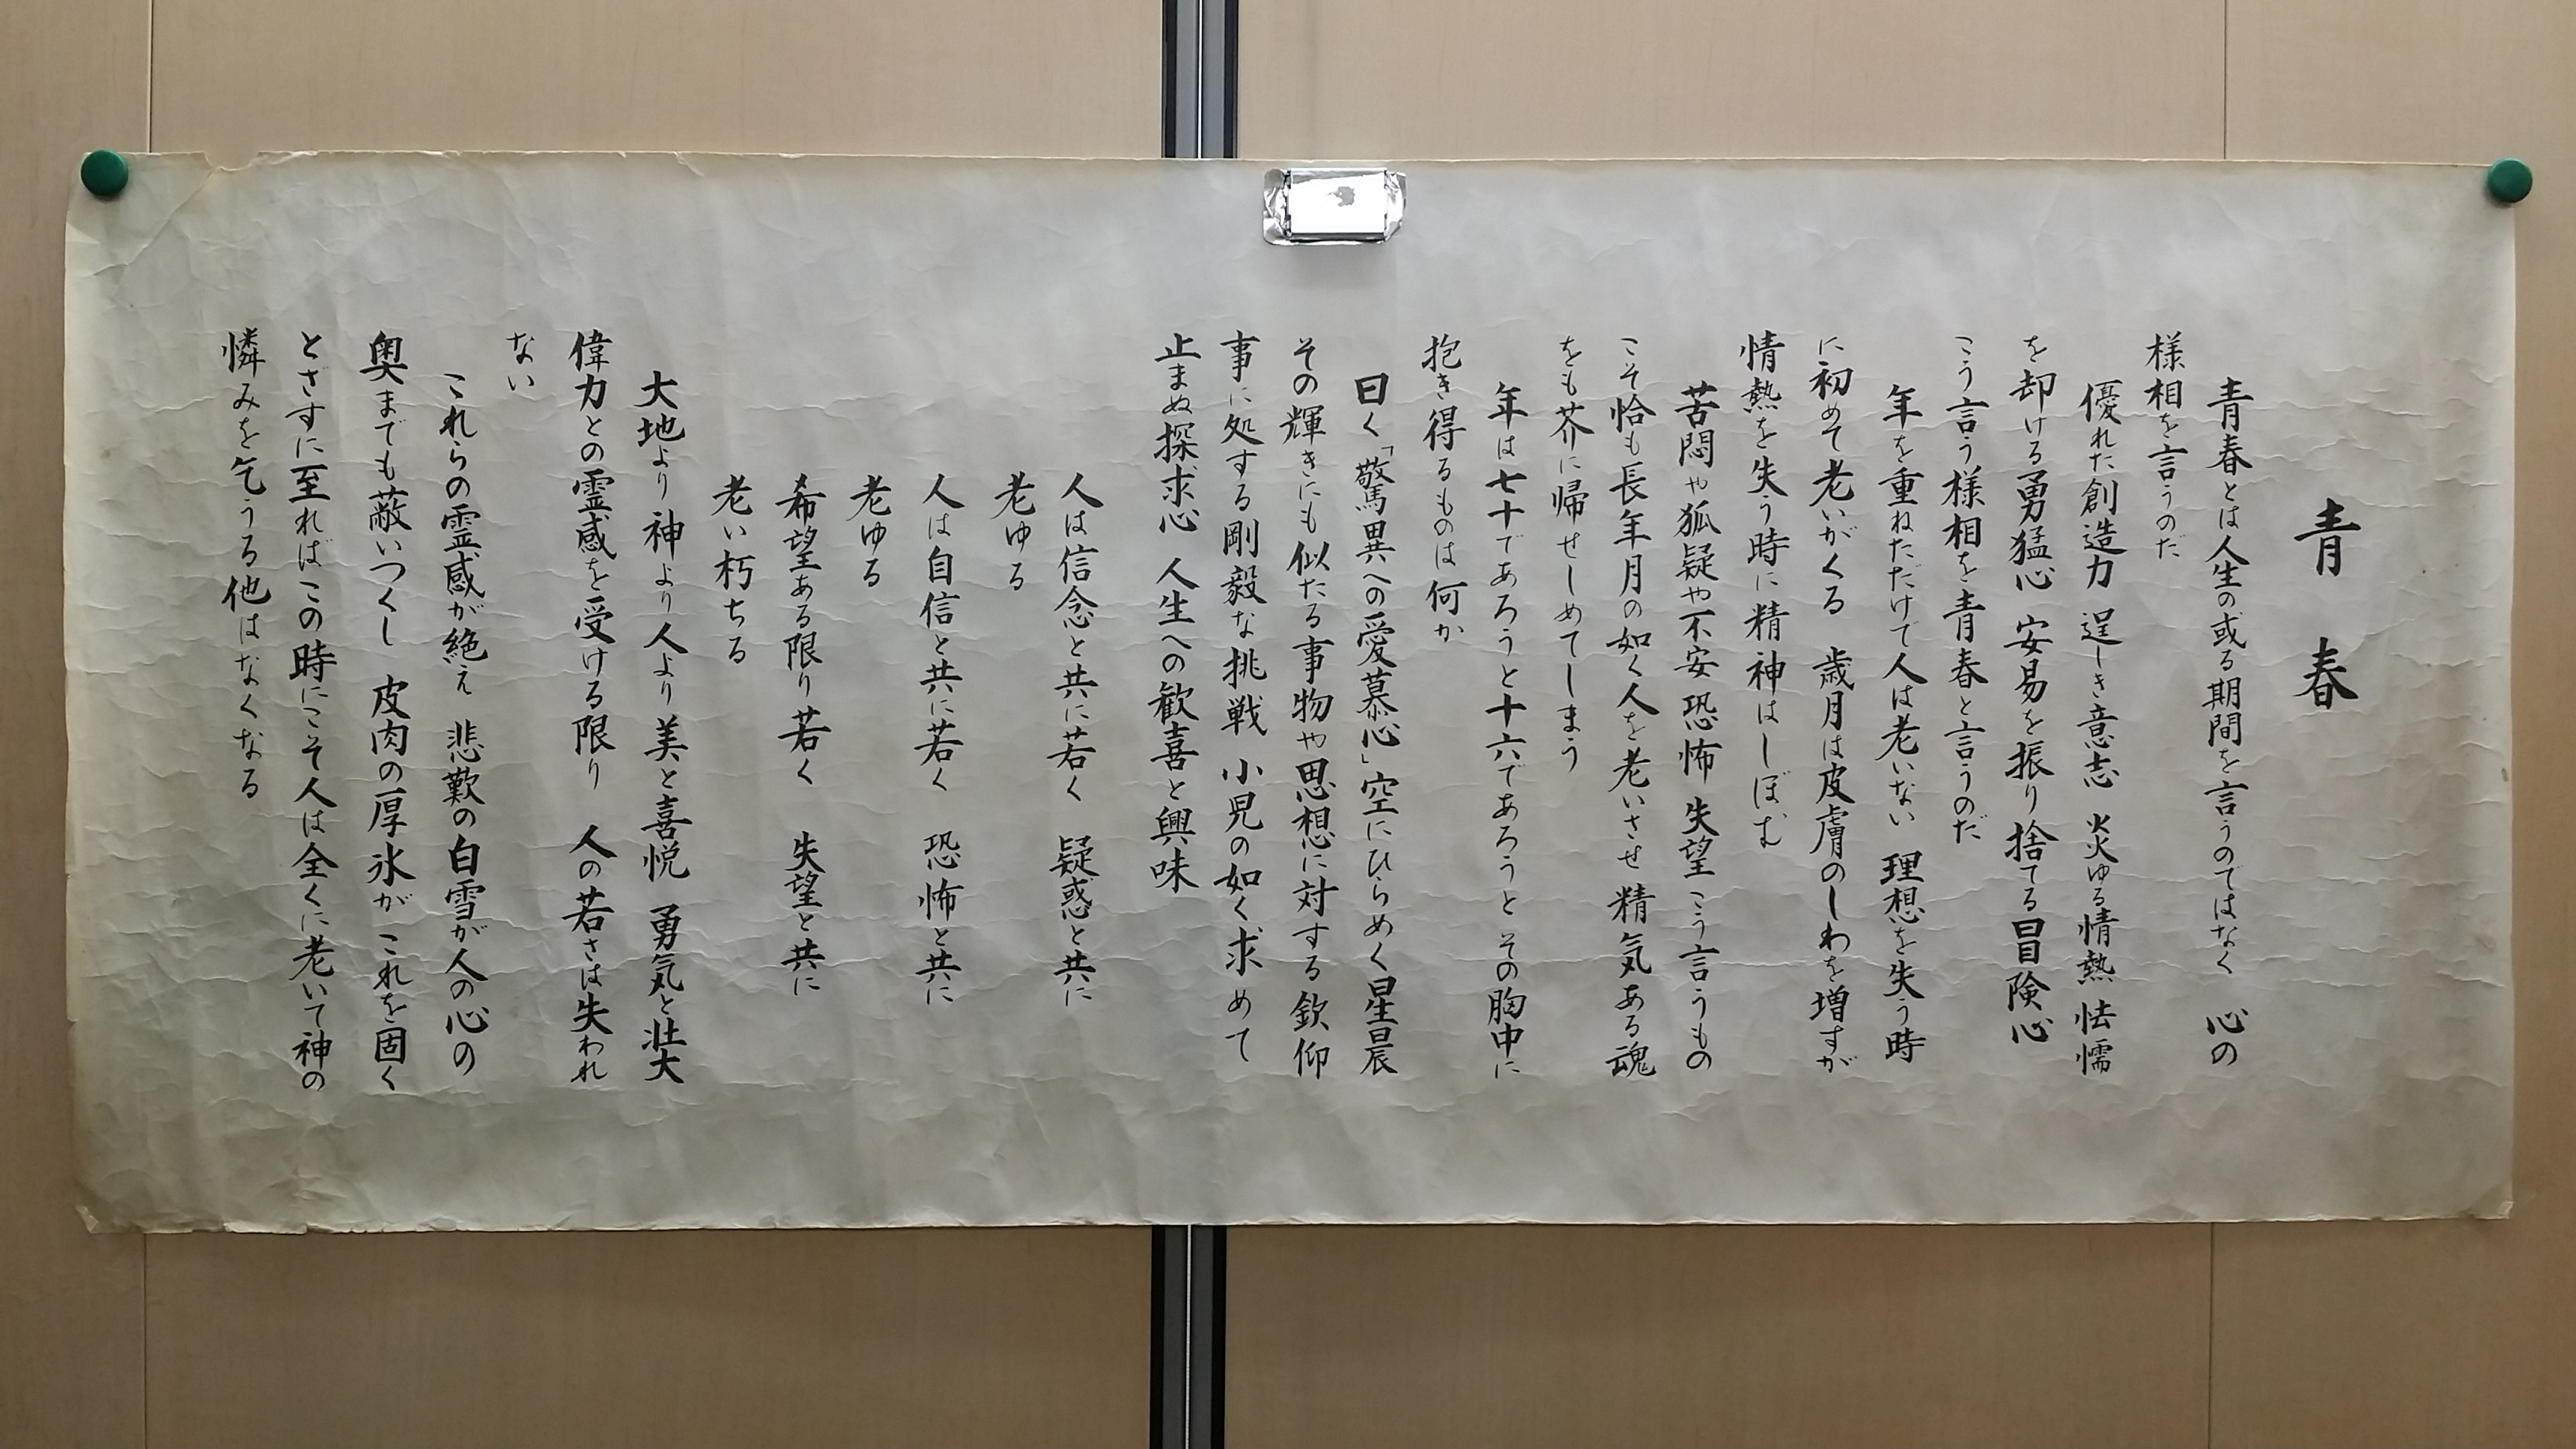 青春
青春とは人生の或る期間を言うのではなく 心の
様相を言うのだ
優れた創造力 逞しき意志 炎ゆる情熱 怯懦
を却ける勇猛心 安易を振り捨てる冒険心
こう言う様相を青春と言うのだ
年を重ねただけで人は老いない 理想を失う時
に初めて老いがくる 歳月は皮膚のしわを増すが
情熱を失う時に精神はしぼむ
苦悶や狐疑や不安 恐怖 失望 こう言うもの
こそ恰も長年月の如く人を老いさせ 精気ある魂
をも芥に帰せしめてしまう
年は七十であろうと十六であろうと その胸中に
抱き得るものは何か
曰く「驚異への愛慕心」空にひらめく星晨
その輝きにも似たる事物や思想に対する欽仰
事に処する剛毅な挑戦 小児の如く求めて
止まぬ探求心 人生への歓喜と興味
人は信念と共に若く 疑惑と共に
老ゆる
人は自信と共に若く 恐怖と共に
老ゆる
希望ある限り若く 失望と共に
老い朽ちる
大地より神より人より美と喜悦 勇気と壮大
偉力との霊感を受ける限り 人の若さは失われ
ない
これらの霊感が絶え 悲歎の白雪が人の心の
奥までも蔽いつくし 皮肉の厚氷がこれを固く
とざすに至ればこの時にこそ人は全くに老いて神の
憐みを乞うる他はなくなる